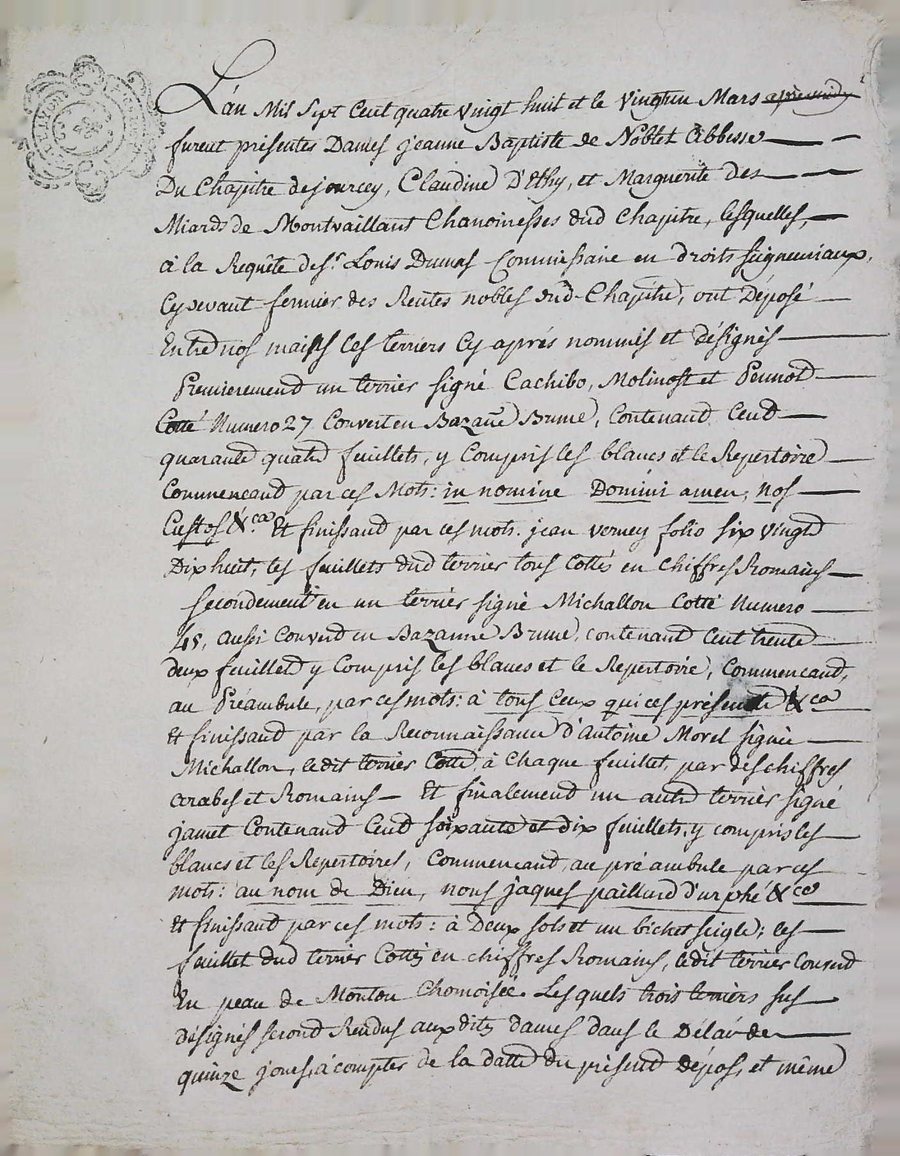 L'an Mil Sept Cent quatre vingt huit et le vingtun Mars
furent présentes Dames jeanne Baptiste de Noblet Abbesse
Du Chapitre de jourcey, Claudine D'Ethy, et Marguerite des
Miards de Montvaillant Chanoinesses dud Chapitre, lesquelles,
à la Requête de Sr. Louis Dumas Commissaire en droits seigneuriaux,
Cy devant fermier des Rentes nobles dud. Chapitre, ont Déposé
Entre nos mains les terriers Cy après nommés et désignés
Premierement un terrier signé Cachibo, Molinost et Pennot
Cotté Numero 27 Couvert en Bazane Brune, Contenant Cent
quarante quatre feuillets, y Compris les blancs et le Repertoire
Commencant par ces Mots: in nomine Domini amen, nos
Custos &ca. Et finissant par ces mots. jean verney folio six vingt
Dix huit, les feuillets dud terrier tous Cottés en Chiffres Romains
Secondement en un terrier signé Michallon Cotté Numero
45, aussi Couvert en Bazanne Brune, contenant Cent trente
deux feuillets y Compris les blancs et le Repertoire, Commencant,
au Préambule, par ces mots: à tous Ceux qui ces présentes &ca
Et finissant par la Reconnaissance d'Antoine Morel signée
Michallon, ledit terrier Cotté, à Chaque feuillet, par des chiffres
arabes et Romains _ Et finalement un autre terrier signé
jamet Contenant Cent soixante et dix feuillets, y compris les
blancs et les Repertoires, Commencant, au préambule par ces
mots: au nom de Dieu, nous jaques paillard d'urphé &ca
Et finissant par ces mots: à Deux sols et un bichet seigle; les
feuillet dud terrier Cottés en chiffres Romains, ledit terrier Couvert
En peau de Mouton Chamoisée. Lesquels trois terriers sus
désignés seront Rendus aux dites dames dans le Délai de
quinze jours, à compter de la datte du présent Dépos, et même